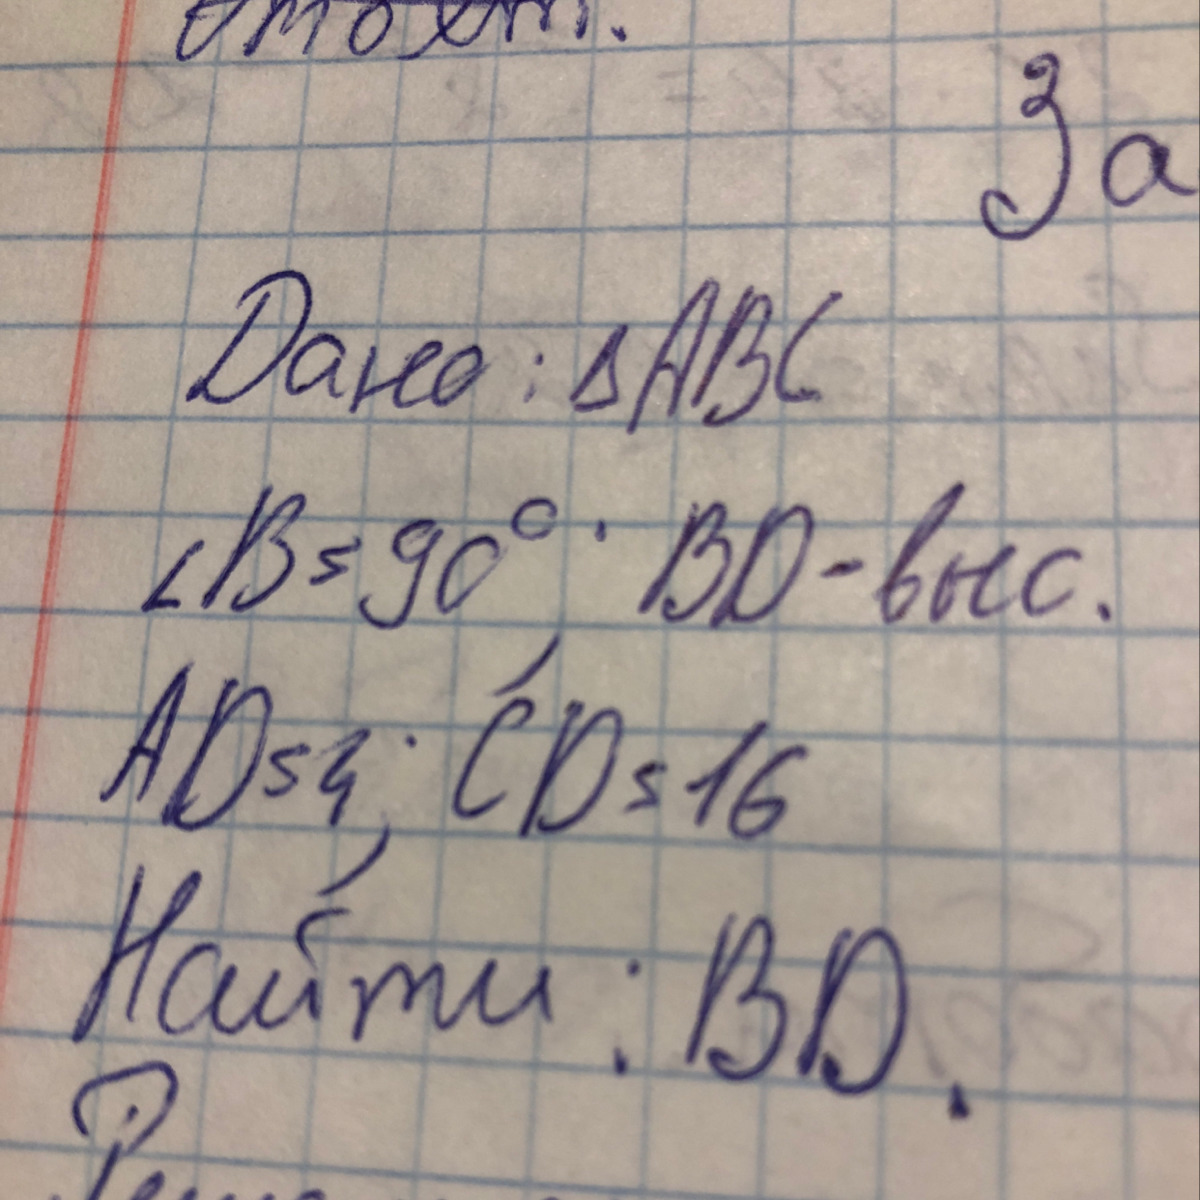 За
Дано: ΔABC
∠B=90°. BD-выс.
AD=4; CD=16
Найти: BD.